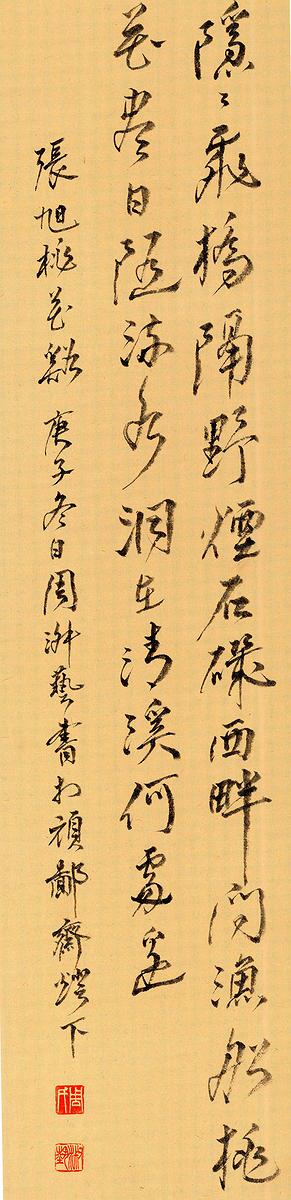 隱〻飛橋隔野煙石磯西畔問漁船桃
花盡日隨流水洞在清溪何處邊
張旭桃花谿 庚子冬日周淑藝書於頑鄙齋燈下
周氏
淑藝